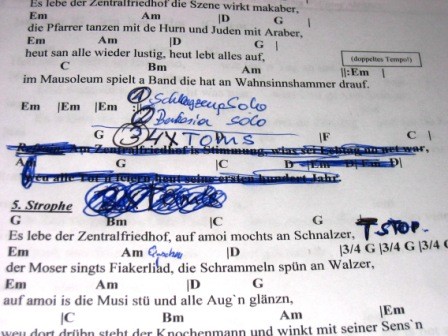 Es lebe der Zentralfriedhof die Szene wirkt makaber,
Em Am |D G
die Pfarrer tanzen mit de Hurn und Juden mit Araber,
Em Am |D G |
heut san alle wieder lustig, heut lebt alles auf,
(doppeltes Tempo!)
C Bm Am ||:Em |
im Mausoleum spielt a Band die hat an Wahnsinnshammer drauf.
Em |Em |Em :|| ① Schlagzeug Solo
② Perkusion Solo
G ③ 4X TOMS |F C |
Am Zentralfriedhof is Stimmung, wias sei Lebtog no net war,
A G |C D |Em D|Em D|
weu alle Tot'n feiern heut seine ersten hundert Jahr.
5. Strophe
G Bm |C G
Es lebe der Zentralfriedhof, auf amoi mochts an Schnalzer, STOP.
Em Am |D |3/4 G |3/4 G |3/4 G
der Moser singts Fiakerliad, die Schrammeln spün an Walzer,
Em Am |D G
auf amoi is die Musi stü und alle Aug`n glänzn,
|C Bm Am |Em
weu dort drübn steht der Knochenmann und winkt mit seiner Sens`n